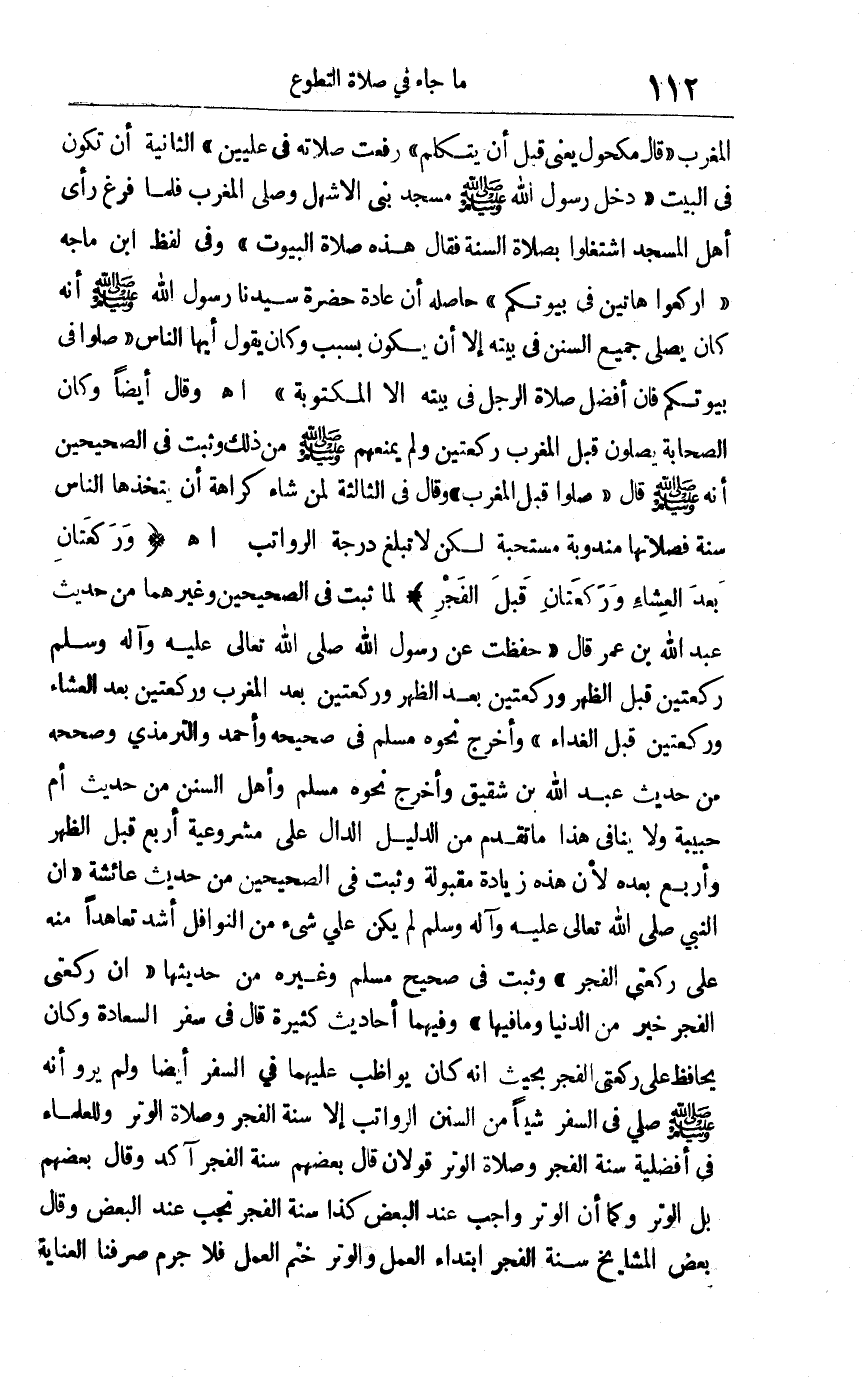 ١١٢
ما جاء في صلاة التطوع
المغرب «قال مكحول يعنى قبل أن يتكلم» رفعت صلاته فى عليين» الثانية أن تكون
فى البيت « دخل رسول الله ﷺ مسجد بنى الاشهل وصلى المغرب فلما فرغ رأى
أهل المسجد اشتغلوا بصلاة السنة فقال هذه صلاة البيوت » وفى لفظ ابن ماجه
« اركعوا هاتين فى بيوتكم » حاصله أن عادة حضرة سيدنا رسول الله ﷺ أنه
كان يصلى جميع السنن فى بيته إلا أن يكون بسبب وكان يقول أيها الناس « صلوا فى
بيوتكم فان أفضل صلاة الرجل فى بيته الا المكتوبة » ا ه وقال أيضاً وكان
الصحابة يصلون قبل المغرب ركعتين ولم يمنعهم ﷺ من ذلك وثبت فى الصحيحين
أنه ﷺ قال « صلوا قبل المغرب» وقال فى الثالثة لمن شاء كراهة أن يتخذها الناس
سنة فصلاتها مندوبة مستحبة لكن لا تبلغ درجة الرواتب ا ه ﴿ وَرَكَعَتَانِ
بَعدَ العِشاءِ وَرَكَعَتَانِ قَبلَ الفَجْرِ ﴾ لما ثبت فى الصحيحين وغيرهما من حديث
عبد الله بن عمر قال « حفظت عن رسول الله صلى الله تعالى عليه وآله وسلم
ركعتين قبل الظهر وركعتين بعد الظهر وركعتين بعد المغرب وركعتين بعد العشاء
وركعتين قبل الغداء » وأخرج نحوه مسلم فى صحيحه وأحمد والترمذي وصححه
من حديث عبد الله بن شقيق وأخرج نحوه مسلم وأهل السنن من حديث أم
حبيبة ولا ينافى هذا ماتقدم من الدليل الدال على مشروعية أربع قبل الظهر
وأربع بعده لأن هذه زيادة مقبولة وثبت فى الصحيحين من حديث عائشة « ان
النبي صلى الله تعالى عليه وآله وسلم لم يكن علي شىء من النوافل أشد تعاهداً منه
على ركعتي الفجر » وثبت فى صحيح مسلم وغيره من حديثها « ان ركعتى
الفجر خير من الدنيا ومافيها » وفيهما أحاديث كثيرة قال فى سفر السعادة وكان
يحافظ على ركعتى الفجر بحيث انه كان يواظب عليهما في السفر أيضا ولم يرو أنه
ﷺ صلي فى السفر شيأً من السنن الرواتب إلا سنة الفجر وصلاة الوتر وللعلماء
فى أفضلية سنة الفجر وصلاة الوتر قولان قال بعضهم سنة الفجر آكد وقال بعضهم
بل الوتر وكما أن الوتر واجب عند البعض كذا سنة الفجر تجب عند البعض وقال
بعض المشايخ سنة الفجر ابتداء العمل والوتر ختم العمل فلا جرم صرفنا العناية